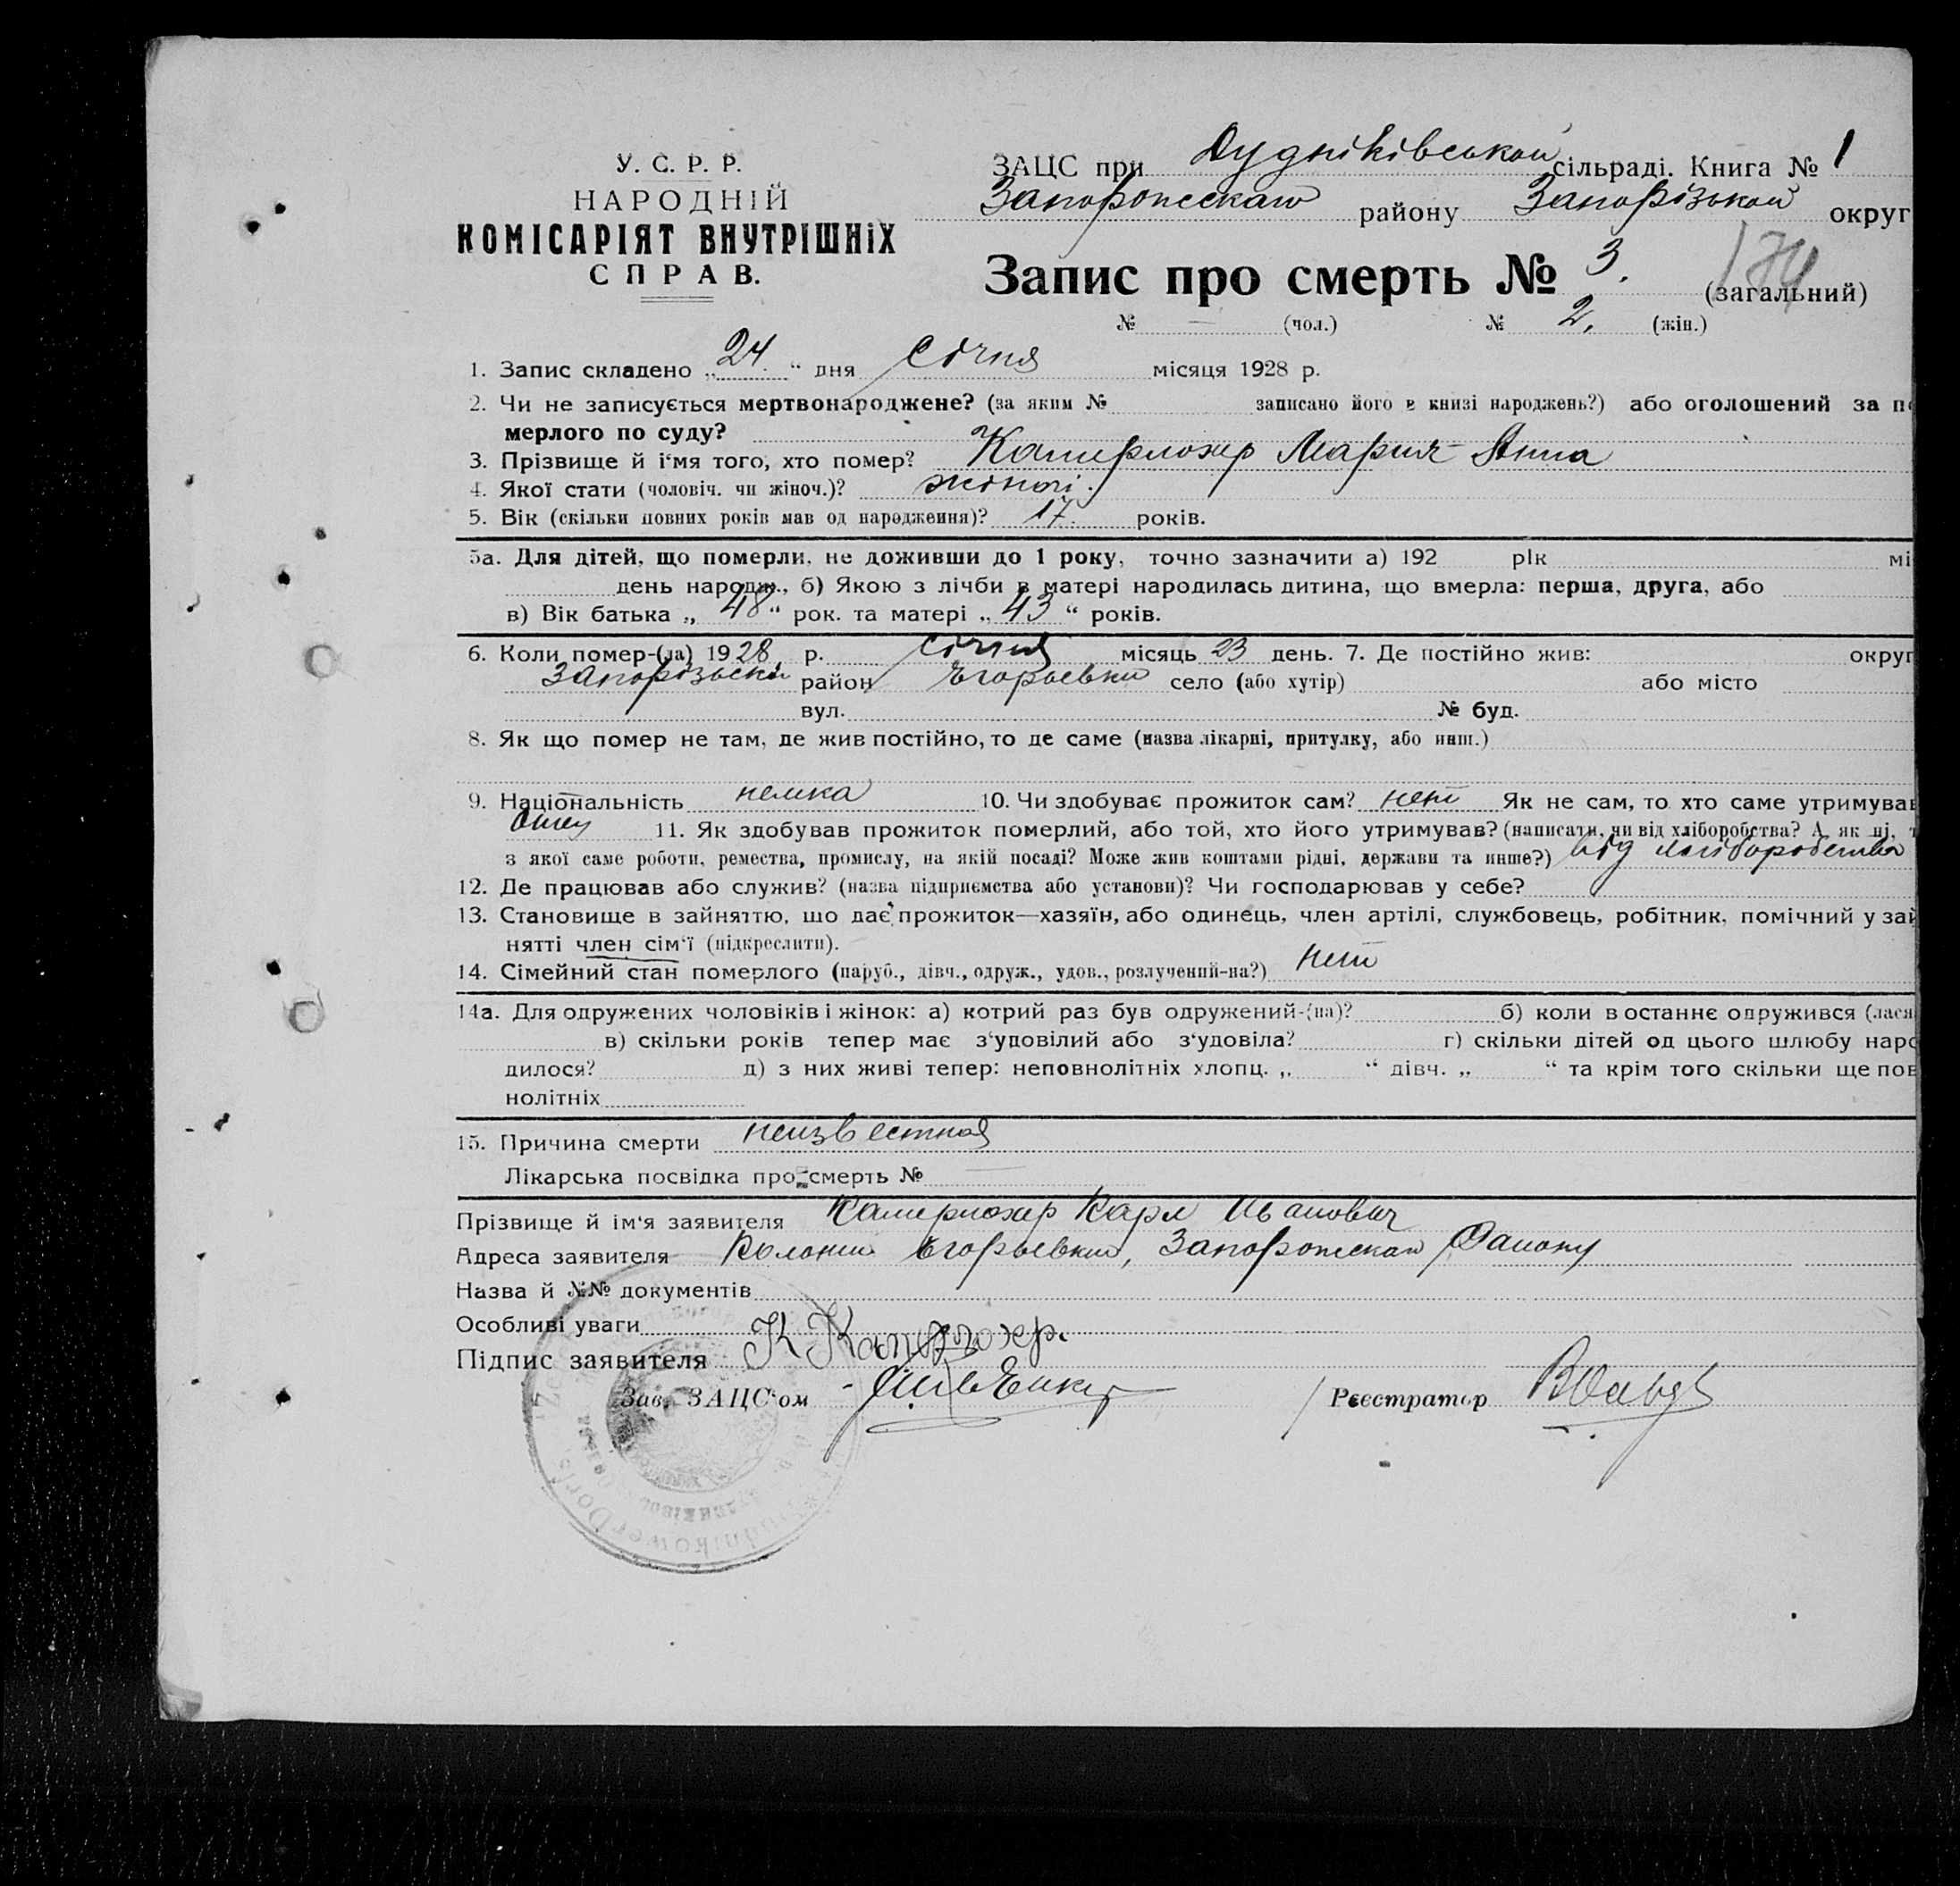 У. С. Р. Р.
НАРОДНІЙ
КОМІСАРІЯТ ВНУТРІШНІХ
СПРАВ.
ЗАЦС при Дудніківськой сільраді. Книга № 1
Запорожскаго району Запорізькой округ
Запис про смерть № 3. (загальний) 174
№ — (чол.) № 2. (жін.)
1. Запис складено „24.“ дня січня місяця 1928 р.
2. Чи не записується мертвонароджене? (за яким № записано його в книзі народжень?) або оголошений за по
мерлого по суду?
3. Прізвище й і'мя того, хто помер? Камерлохер Мария-Анна
4. Якої стати (чоловіч. чи жіноч.)? жіночі.
5. Вік (скільки повних років мав од народження)? 17. років.
5а. Для дітей, що померли, не доживши до 1 року, точно зазначити а) 192 рік мі
день народж., б) Якою з лічби в матері народилась дитина, що вмерла: перша, друга, або
в) Вік батька „48“ рок. та матері „43“ років.
6. Коли помер-(ла) 1928 р. січня місяць 23 день. 7. Де постійно жив: округ
Запорізьскій район Егорьевки село (або хутір) або місто
вул. № буд.
8. Як що помер не там, де жив постійно, то де саме (назва лікарні, притулку, або инш.)
9. Національність немка 10. Чи здобуває прожиток сам? нет Як не сам, то хто саме утримував
отец 11. Як здобував прожиток померлий, або той, хто його утримував? (написати, чи від хліборобства? А як ні, т
з якої саме роботи, ремества, промислу, на якій посаді? Може жив коштами рідні, держави та инше?) від хліборобства
12. Де працював або служив? (назва підприємства або установи)? Чи господарював у себе?
13. Становище в зайняттю, що дає прожиток—хазяїн, або одинець, член артілі, службовець, робітник, помічний у зай
нятті член сім'ї (підкреслити).
14. Сімейний стан померлого (паруб., дівч., одруж., удов., розлучений-на?) нет
14а. Для одружених чоловіків і жінок: а) котрий раз був одружений-(на)? б) коли востаннє одружився (лася
в) скільки років тепер має з'удовілий або з'удовіла? г) скільки дітей од цього шлюбу наро
дилося? д) з них живі тепер: неповнолітніх хлопц. „ “ дівч. „ “ та крім того скільки ще пов
нолітніх
15. Причина смерти неизвестная
Лікарська посвідка про смерть № —
Прізвище й ім'я заявителя Камерлохер Карл Иванович
Адреса заявителя Колонии Егорьевки, Запорожскаго Району
Назва й №№ документів
Особливі уваги
Підпис заявителя К Камерлохер.
Зав. ЗАЦС'ом Реєстратор